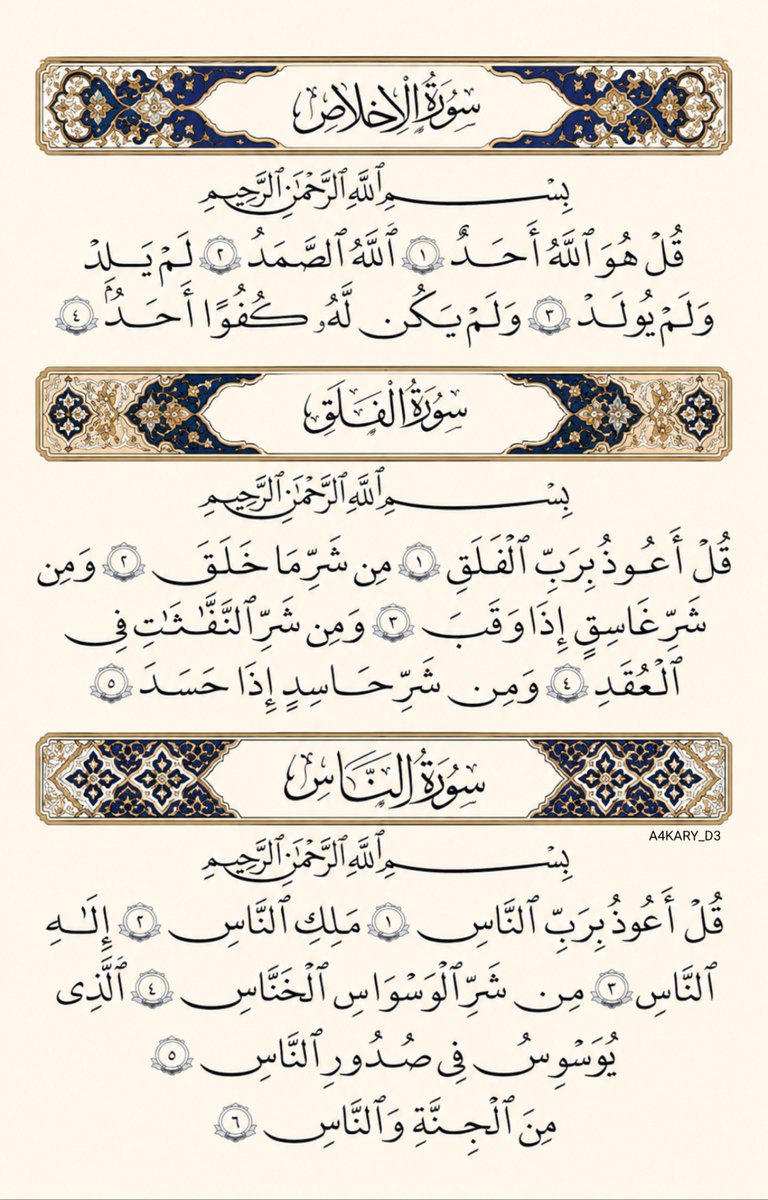 سُورَةُ الْإِخْلَاصِ
بِسْمِ ٱللَّهِ ٱلرَّحْمَٰنِ ٱلرَّحِيمِ
قُلْ هُوَ ٱللَّهُ أَحَدٌ ١ ٱللَّهُ ٱلصَّمَدُ ٢ لَمْ يَلِدْ
وَلَمْ يُولَدْ ٣ وَلَمْ يَكُن لَّهُۥ كُفُوًا أَحَدٌۢ ٤
سُورَةُ الْفَلَقِ
بِسْمِ ٱللَّهِ ٱلرَّحْمَٰنِ ٱلرَّحِيمِ
قُلْ أَعُوذُ بِرَبِّ ٱلْفَلَقِ ١ مِن شَرِّ مَا خَلَقَ ٢ وَمِن
شَرِّ غَاسِقٍ إِذَا وَقَبَ ٣ وَمِن شَرِّ ٱلنَّفَّٰثَٰتِ فِى
ٱلْعُقَدِ ٤ وَمِن شَرِّ حَاسِدٍ إِذَا حَسَدَ ٥
سُورَةُ النَّاسِ
A4KARY_D3
بِسْمِ ٱللَّهِ ٱلرَّحْمَٰنِ ٱلرَّحِيمِ
قُلْ أَعُوذُ بِرَبِّ ٱلنَّاسِ ١ مَلِكِ ٱلنَّاسِ ٢ إِلَٰهِ
ٱلنَّاسِ ٣ مِن شَرِّ ٱلْوَسْوَاسِ ٱلْخَنَّاسِ ٤ ٱلَّذِى
يُوَسْوِسُ فِى صُدُورِ ٱلنَّاسِ ٥
مِنَ ٱلْجِنَّةِ وَٱلنَّاسِ ٦